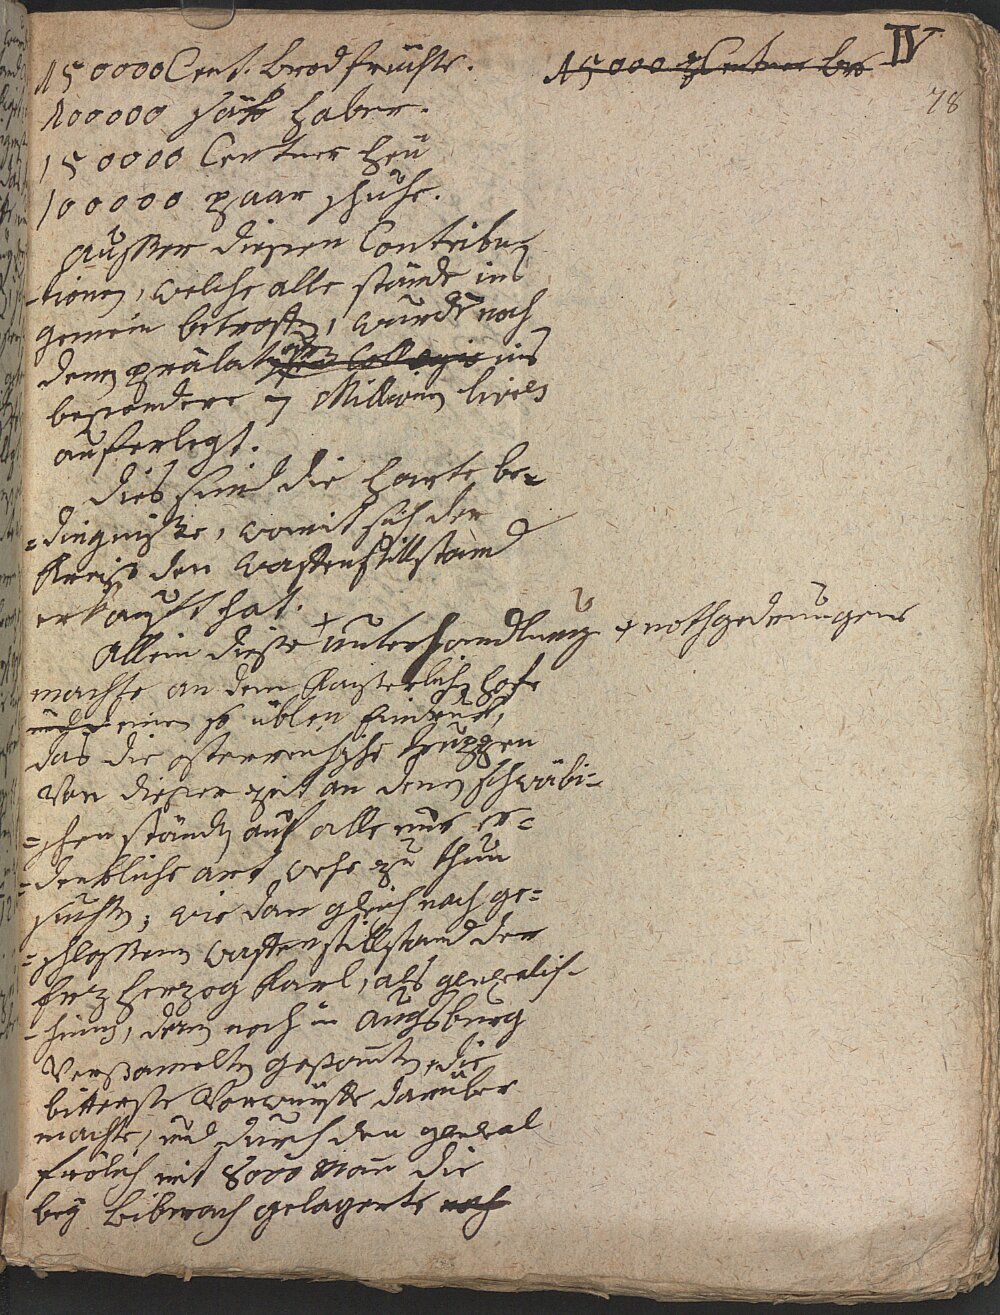 IV
78
150000 Cent. brodfrüchte.
15000 Zentner bro
100000 säk haber.
150000 Centner heü
100000 paar schuhe.
ausser diesen Contribu
-tionen, welche alle stände ins
gemein betroffen, wurde noch
dem prälat: ins
besondere 7 Millionen livres
auferlegt.
dies sind die harte be-
=dingniße, womit sich der
Kreiß den waffenstillstand
erkauft hat.
Allein diese + unterhandlung + nothgedrungene
machte an dem Kaiserlichen hofe
einen so üblen Eindruck,
das die österreichische truppen
von dieser zeit an denen schwäbi=
=schen ständen auf alle nur er=
=denkliche art wehe zu thun
suchten; wie dan gleich nach ge=
=schlossenen waffenstillstand der
Erz herzog Karl, als
denen noch in Augsburg
versamelten gesandten die
bitterste vorwürffe darüber
machte, und durch den general
frölich mit 8000 man die
bey biberach gelagerte noch